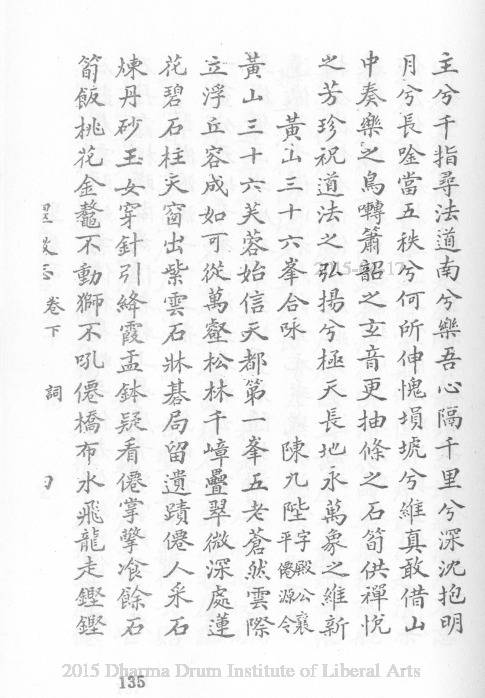 主兮千指尋法道南兮樂吾心隔千里兮深沈抱明
月兮長唫當五秩兮何所伸愧塤埙兮維真敢借山
中奏樂之鳥囀簫韶之玄音更抽條之石筍供禪悅
之芳珍祝道法之弘揚兮極天長地永萬象之維新
黃山三十六峯合咏 陳九陛字殿公襄平僊源令
黃山三十六芙蓉始信天都第一峯五老蒼然雲際
立浮丘容成如可從萬壑松林千嶂疊翠微深處蓮
花碧石柱天窗出紫雲石牀碁局留遺蹟僊人采石
煉丹砂玉女穿針引絳霞盂鉢疑看僊掌擎飡餘石
筍飯桃花金鼇不動獅不吼僊橋布水飛龍走鏗鏗
卷下 詞
135
2015 Dharma Drum Institute of Liberal Arts